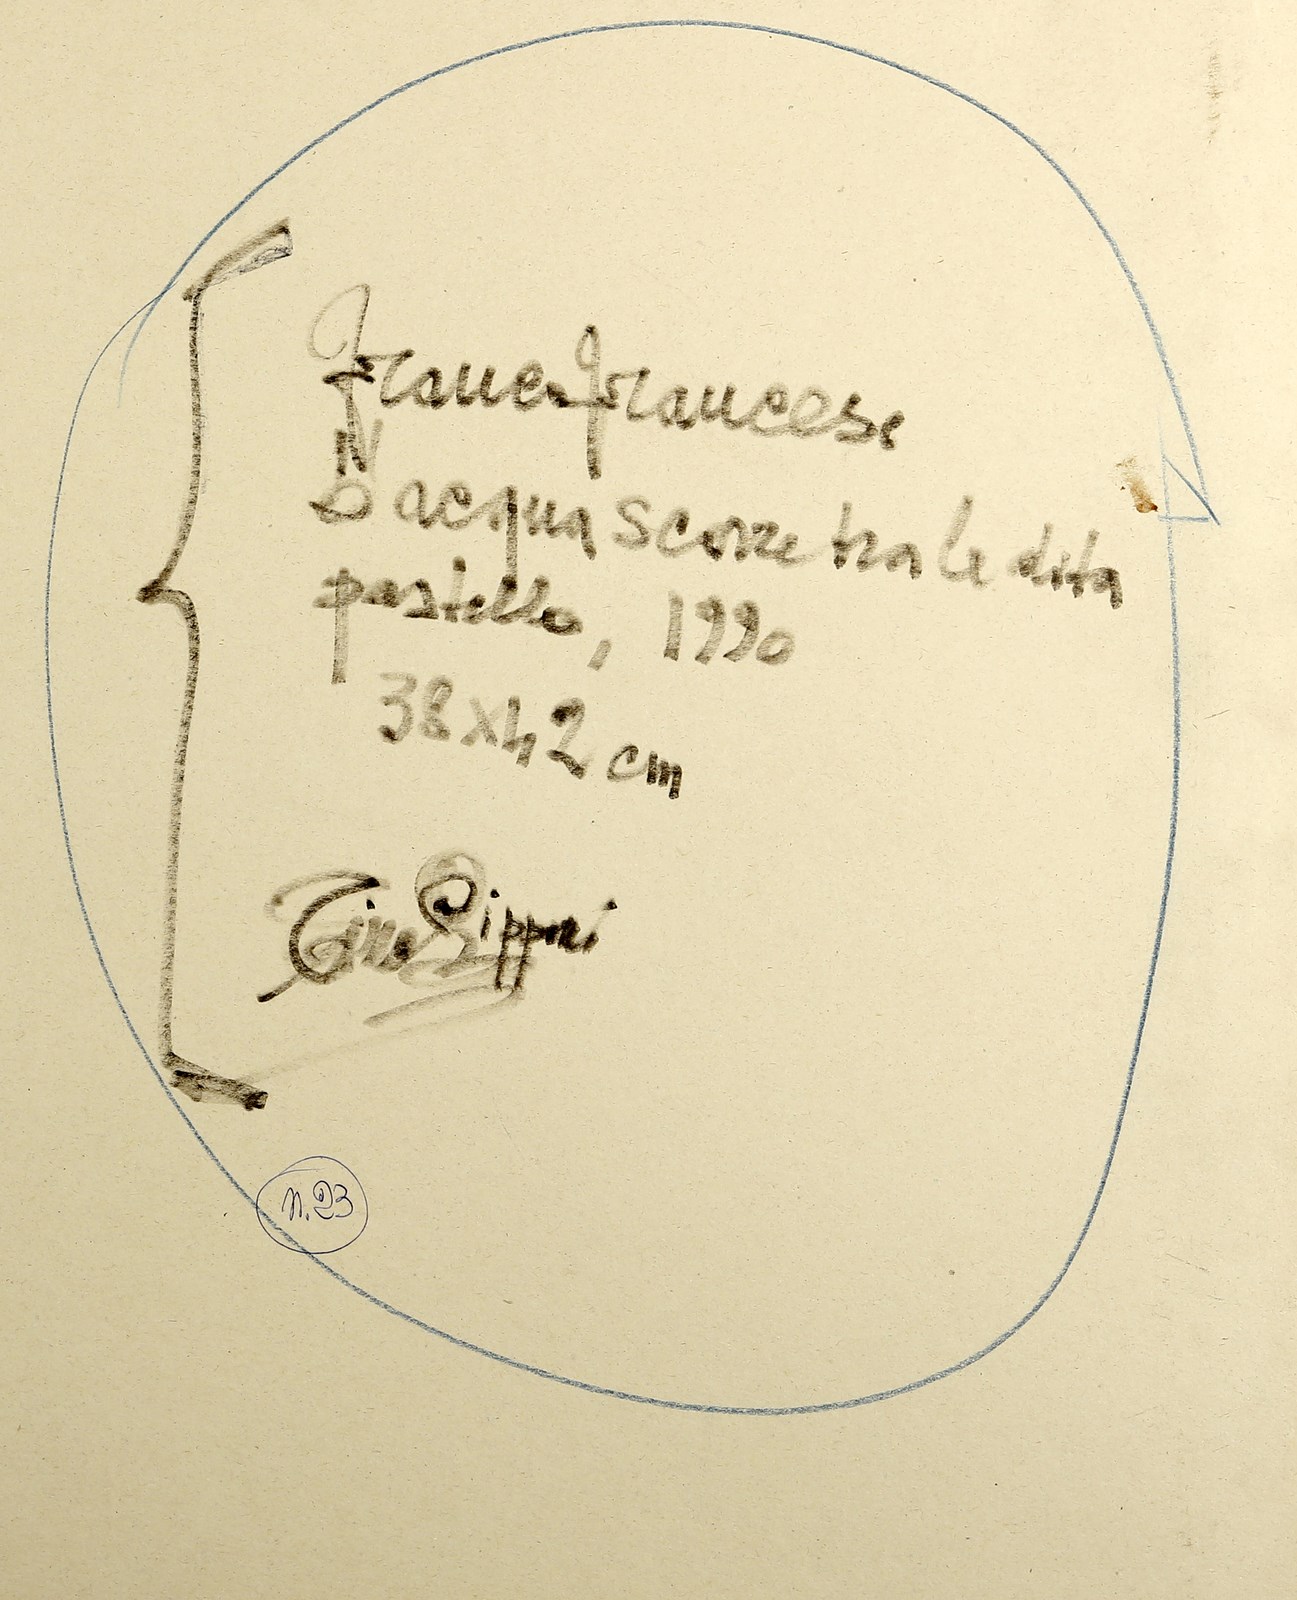 Franco Francese
acqua scorre tra le dita
pastello, 1990
38x42 cm
Tino Gipponi
n. 23